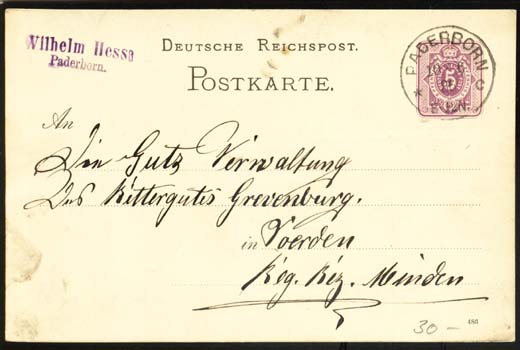 Wilhelm Hesse
Paderborn.
DEUTSCHE REICHSPOST.
POSTKARTE.
PADERBORN
C
5
An
Die Gutz Verwaltung
Des Rittergutes Grevenburg.
in Voerden
Reg. Bez. Minden
30 –
486